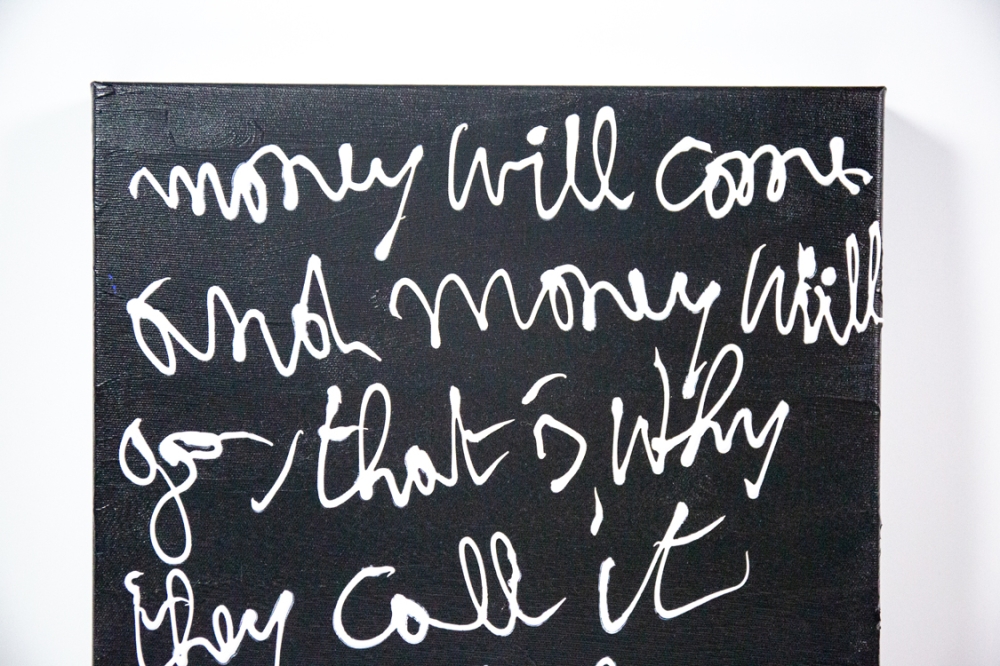 money will come
and money will
go, that's why
they call it